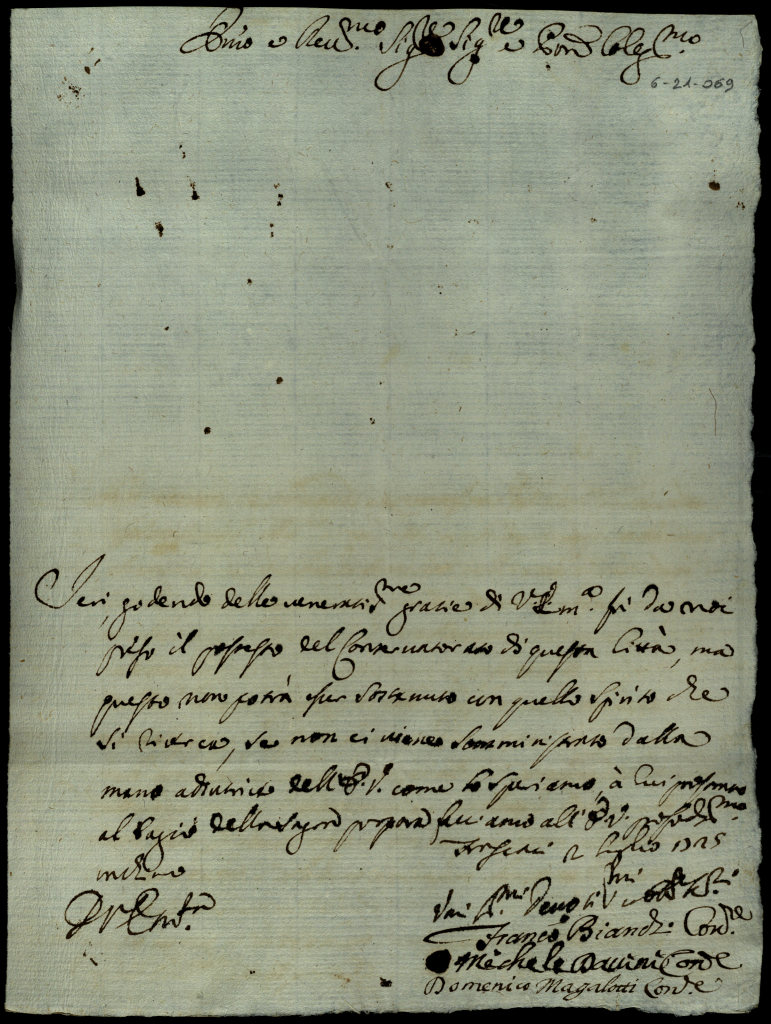 Emo e Reu.mo Sig.re Sig.re e Pron Colg.mo
6-21-069
Ieri, godendo delle veneratis.me gratie di V. Em.a fù da noi
preso il possesso del Conservatorato di questa Città, ma
questo non potrà esser sostenuto con quello spirito che
si ricerca, se non ci viene somministrato dalla
mano adiutrice dell' E. V. come lo speriamo, à cui
al bagio della sagra porpora facciamo all' E. V. profondis.mo
inchino
Frascati 2 luglio 1725
D. V. Em.za
Um.mi Deuotis.mi
Franco Bianchi Con.re
Michele Dauini Con.re
Domenico Magalotti Con.re